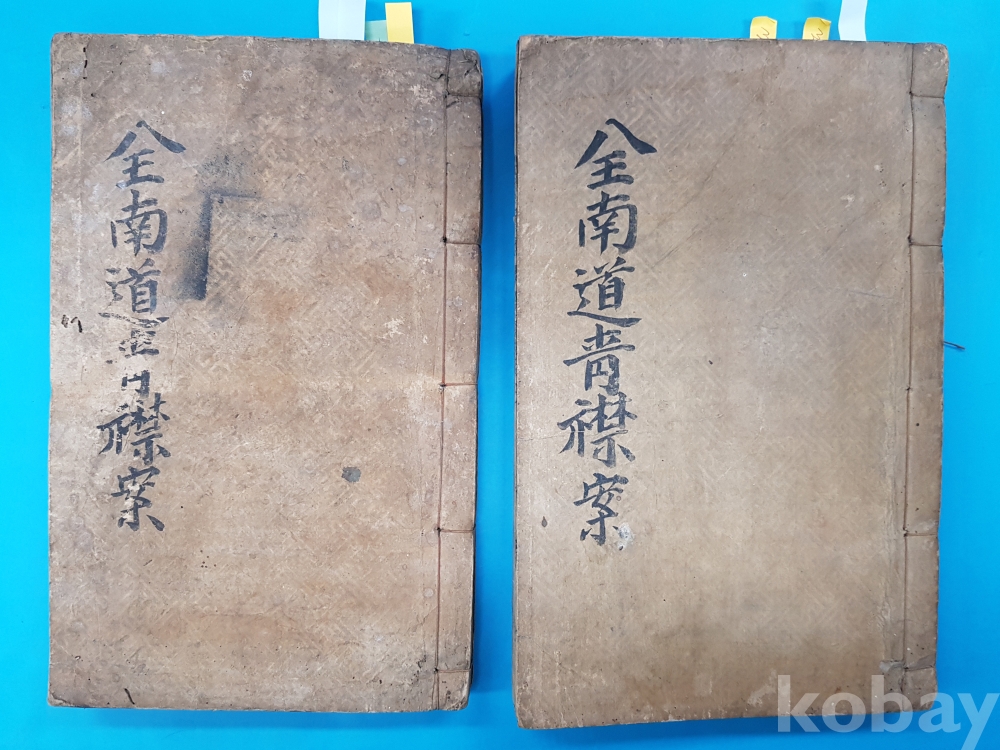 全南道青襟案
全南道青襟案
kobay